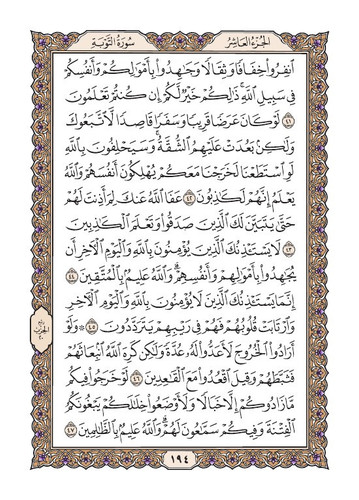 الجزء العاشر سورة التوبة
انفِرُوا۟ خِفَافًا وَثِقَالًا وَجَٰهِدُوا۟ بِأَمْوَٰلِكُمْ وَأَنفُسِكُمْ
فِي سَبِيلِ ٱللَّهِ ذَٰلِكُمْ خَيْرٌ لَّكُمْ إِن كُنتُمْ تَعْلَمُونَ
٤١ لَوْ كَانَ عَرَضًا قَرِيبًا وَسَفَرًا قَاصِدًا لَّٱتَّبَعُوكَ
وَلَٰكِنۢ بَعُدَتْ عَلَيْهِمُ ٱلشُّقَّةُ وَسَيَحْلِفُونَ بِٱللَّهِ
لَوِ ٱسْتَطَعْنَا لَخَرَجْنَا مَعَكُمْ يُهْلِكُونَ أَنفُسَهُمْ وَٱللَّهُ
يَعْلَمُ إِنَّهُمْ لَكَٰذِبُونَ ٤٢ عَفَا ٱللَّهُ عَنكَ لِمَ أَذِنتَ لَهُمْ
حَتَّىٰ يَتَبَيَّنَ لَكَ ٱلَّذِينَ صَدَقُوا۟ وَتَعْلَمَ ٱلْكَٰذِبِينَ
٤٣ لَا يَسْتَـْٔذِنُكَ ٱلَّذِينَ يُؤْمِنُونَ بِٱللَّهِ وَٱلْيَوْمِ ٱلْءَاخِرِ أَن
يُجَٰهِدُوا۟ بِأَمْوَٰلِهِمْ وَأَنفُسِهِمْ وَٱللَّهُ عَلِيمٌۢ بِٱلْمُتَّقِينَ ٤٤
إِنَّمَا يَسْتَـْٔذِنُكَ ٱلَّذِينَ لَا يُؤْمِنُونَ بِٱللَّهِ وَٱلْيَوْمِ ٱلْءَاخِرِ
وَٱرْتَابَتْ قُلُوبُهُمْ فَهُمْ فِي رَيْبِهِمْ يَتَرَدَّدُونَ ٤٥ ۞ وَلَوْ
أَرَادُوا۟ ٱلْخُرُوجَ لَأَعَدُّوا۟ لَهُۥ عُدَّةً وَلَٰكِن كَرِهَ ٱللَّهُ ٱنۢبِعَاثَهُمْ
فَثَبَّطَهُمْ وَقِيلَ ٱقْعُدُوا۟ مَعَ ٱلْقَٰعِدِينَ ٤٦ لَوْ خَرَجُوا۟ فِيكُم
مَّا زَادُوكُمْ إِلَّا خَبَالًا وَلَأَوْضَعُوا۟ خِلَٰلَكُمْ يَبْغُونَكُمُ
ٱلْفِتْنَةَ وَفِيكُمْ سَمَّٰعُونَ لَهُمْ وَٱللَّهُ عَلِيمٌۢ بِٱلظَّٰلِمِينَ ٤٧
١٩٤